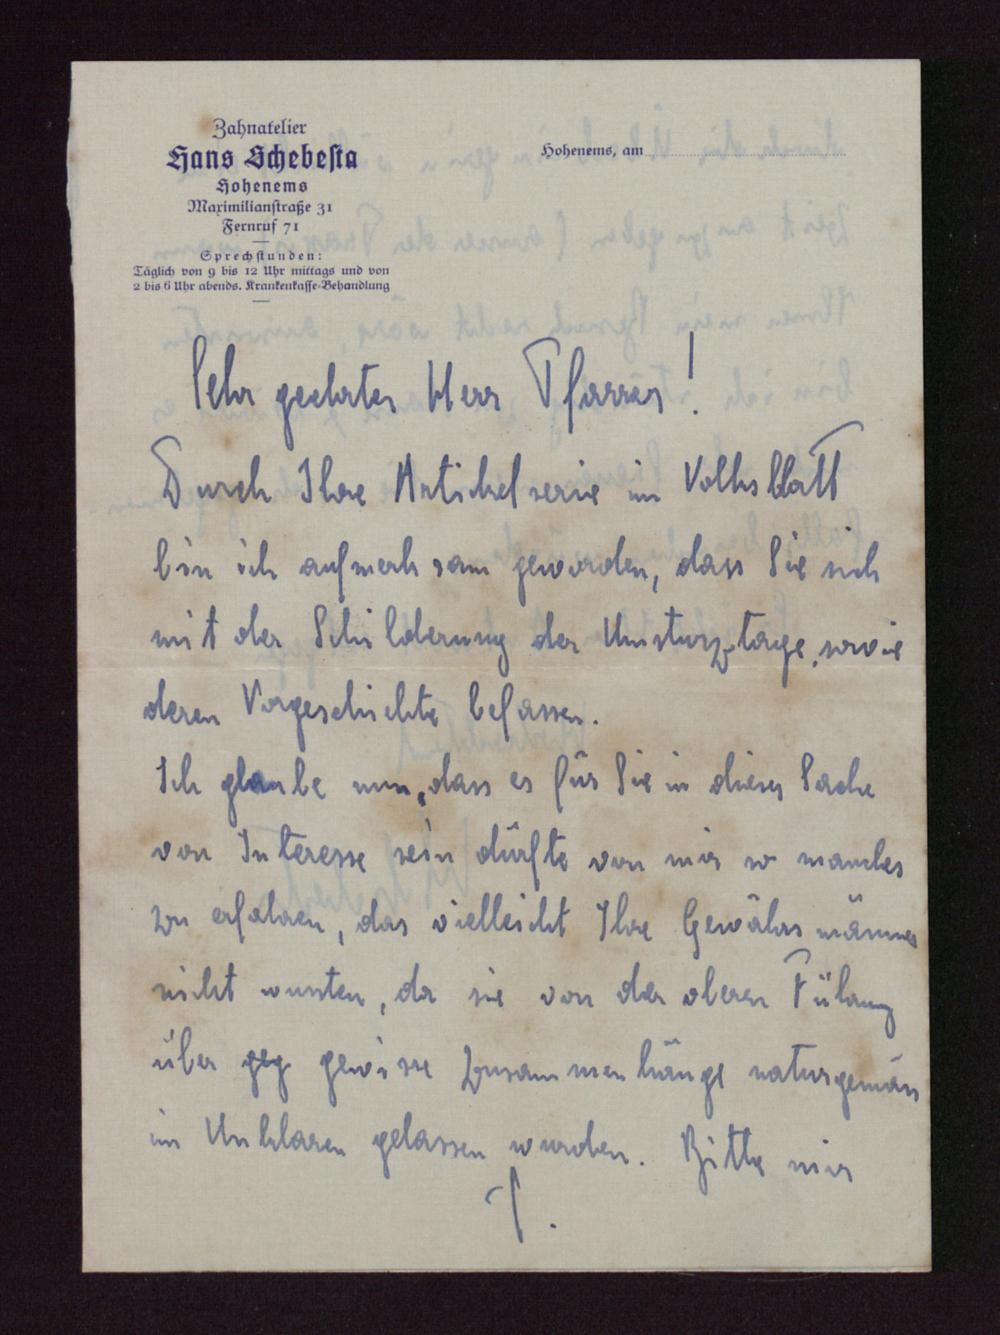 Zahnatelier
Hans Schebesta
Hohenems
Maximilianstraße 31
Fernruf 71
Sprechstunden:
Täglich von 9 bis 12 Uhr mittags und von
2 bis 6 Uhr abends. Krankenkasse-Behandlung
Hohenems, am
Sehr geehrter Herr Pfarrer!
Durch Ihre Artikelserie im Volksblatt
bin ich aufmerksam geworden, dass Sie sich
mit der Schilderung der Umsturztage, sowie
deren Vorgeschichte befassen.
Ich glaube nun, dass es für Sie in dieser Sache
von Interesse sein dürfte von mir so manches
zu erfahren, das vielleicht Ihre Gewährsmänner
nicht wussten, da sie von der oberen Führung
über geg gewisse Zusammenhänge naturgemäss
im Unklaren gelassen wurden. Bitte mir